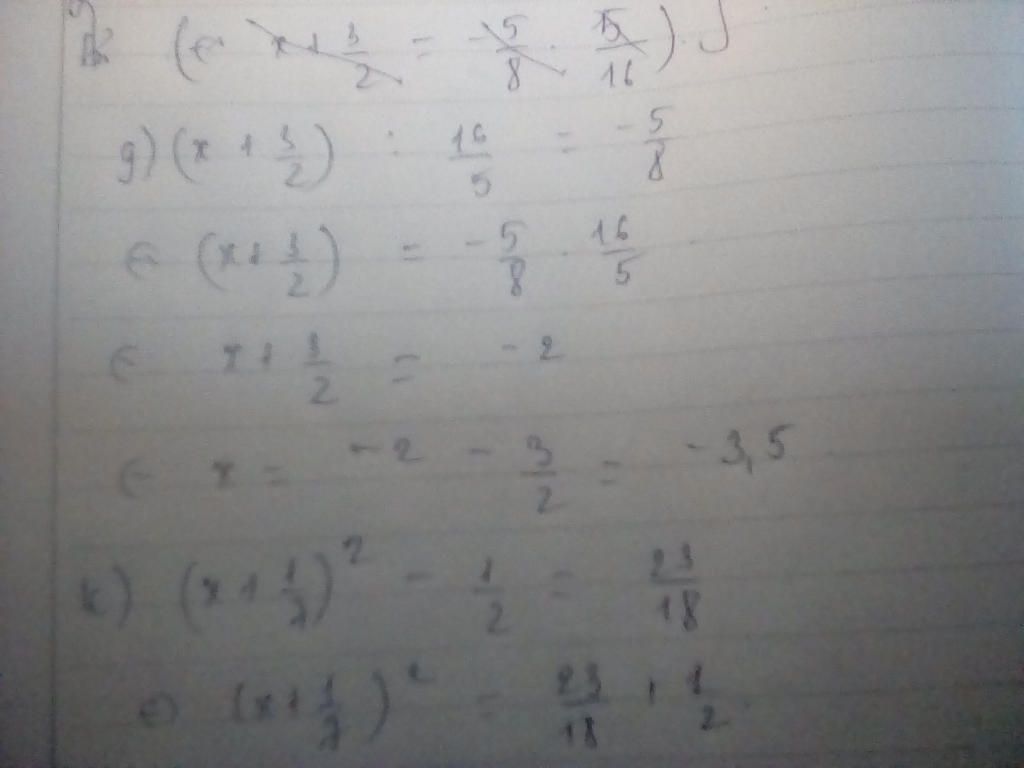 (⇔ x + 3/2 = -5/8 . 15/16)
g) (x + 3/2) : 16/5 = -5/8
⇔ (x + 3/2) = -5/8 . 16/5
⇔ x + 3/2 = -2
⇔ x = -2 - 3/2 = -3,5
k) (x + 1/7)² - 1/2 = 23/18
⇔ (x + 1/7)² = 23/18 + 1/2